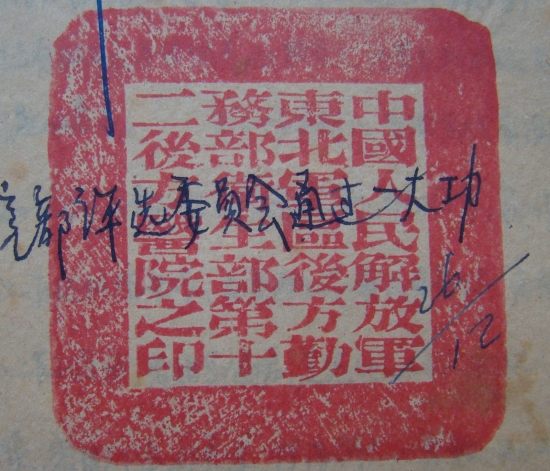 中國人民解放軍
東北軍區後方勤
務部衛生部第十
二後方醫院之印
部评选委员会通过一大功
26/12